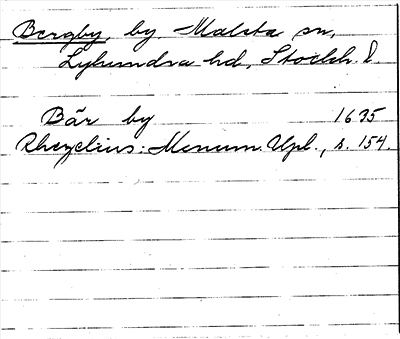 Bergby, by. Malsta sn,
Lyhundra hd, Stockh. l.
Bär by 1635
Rhezelius: Monum. Upl., s. 154.